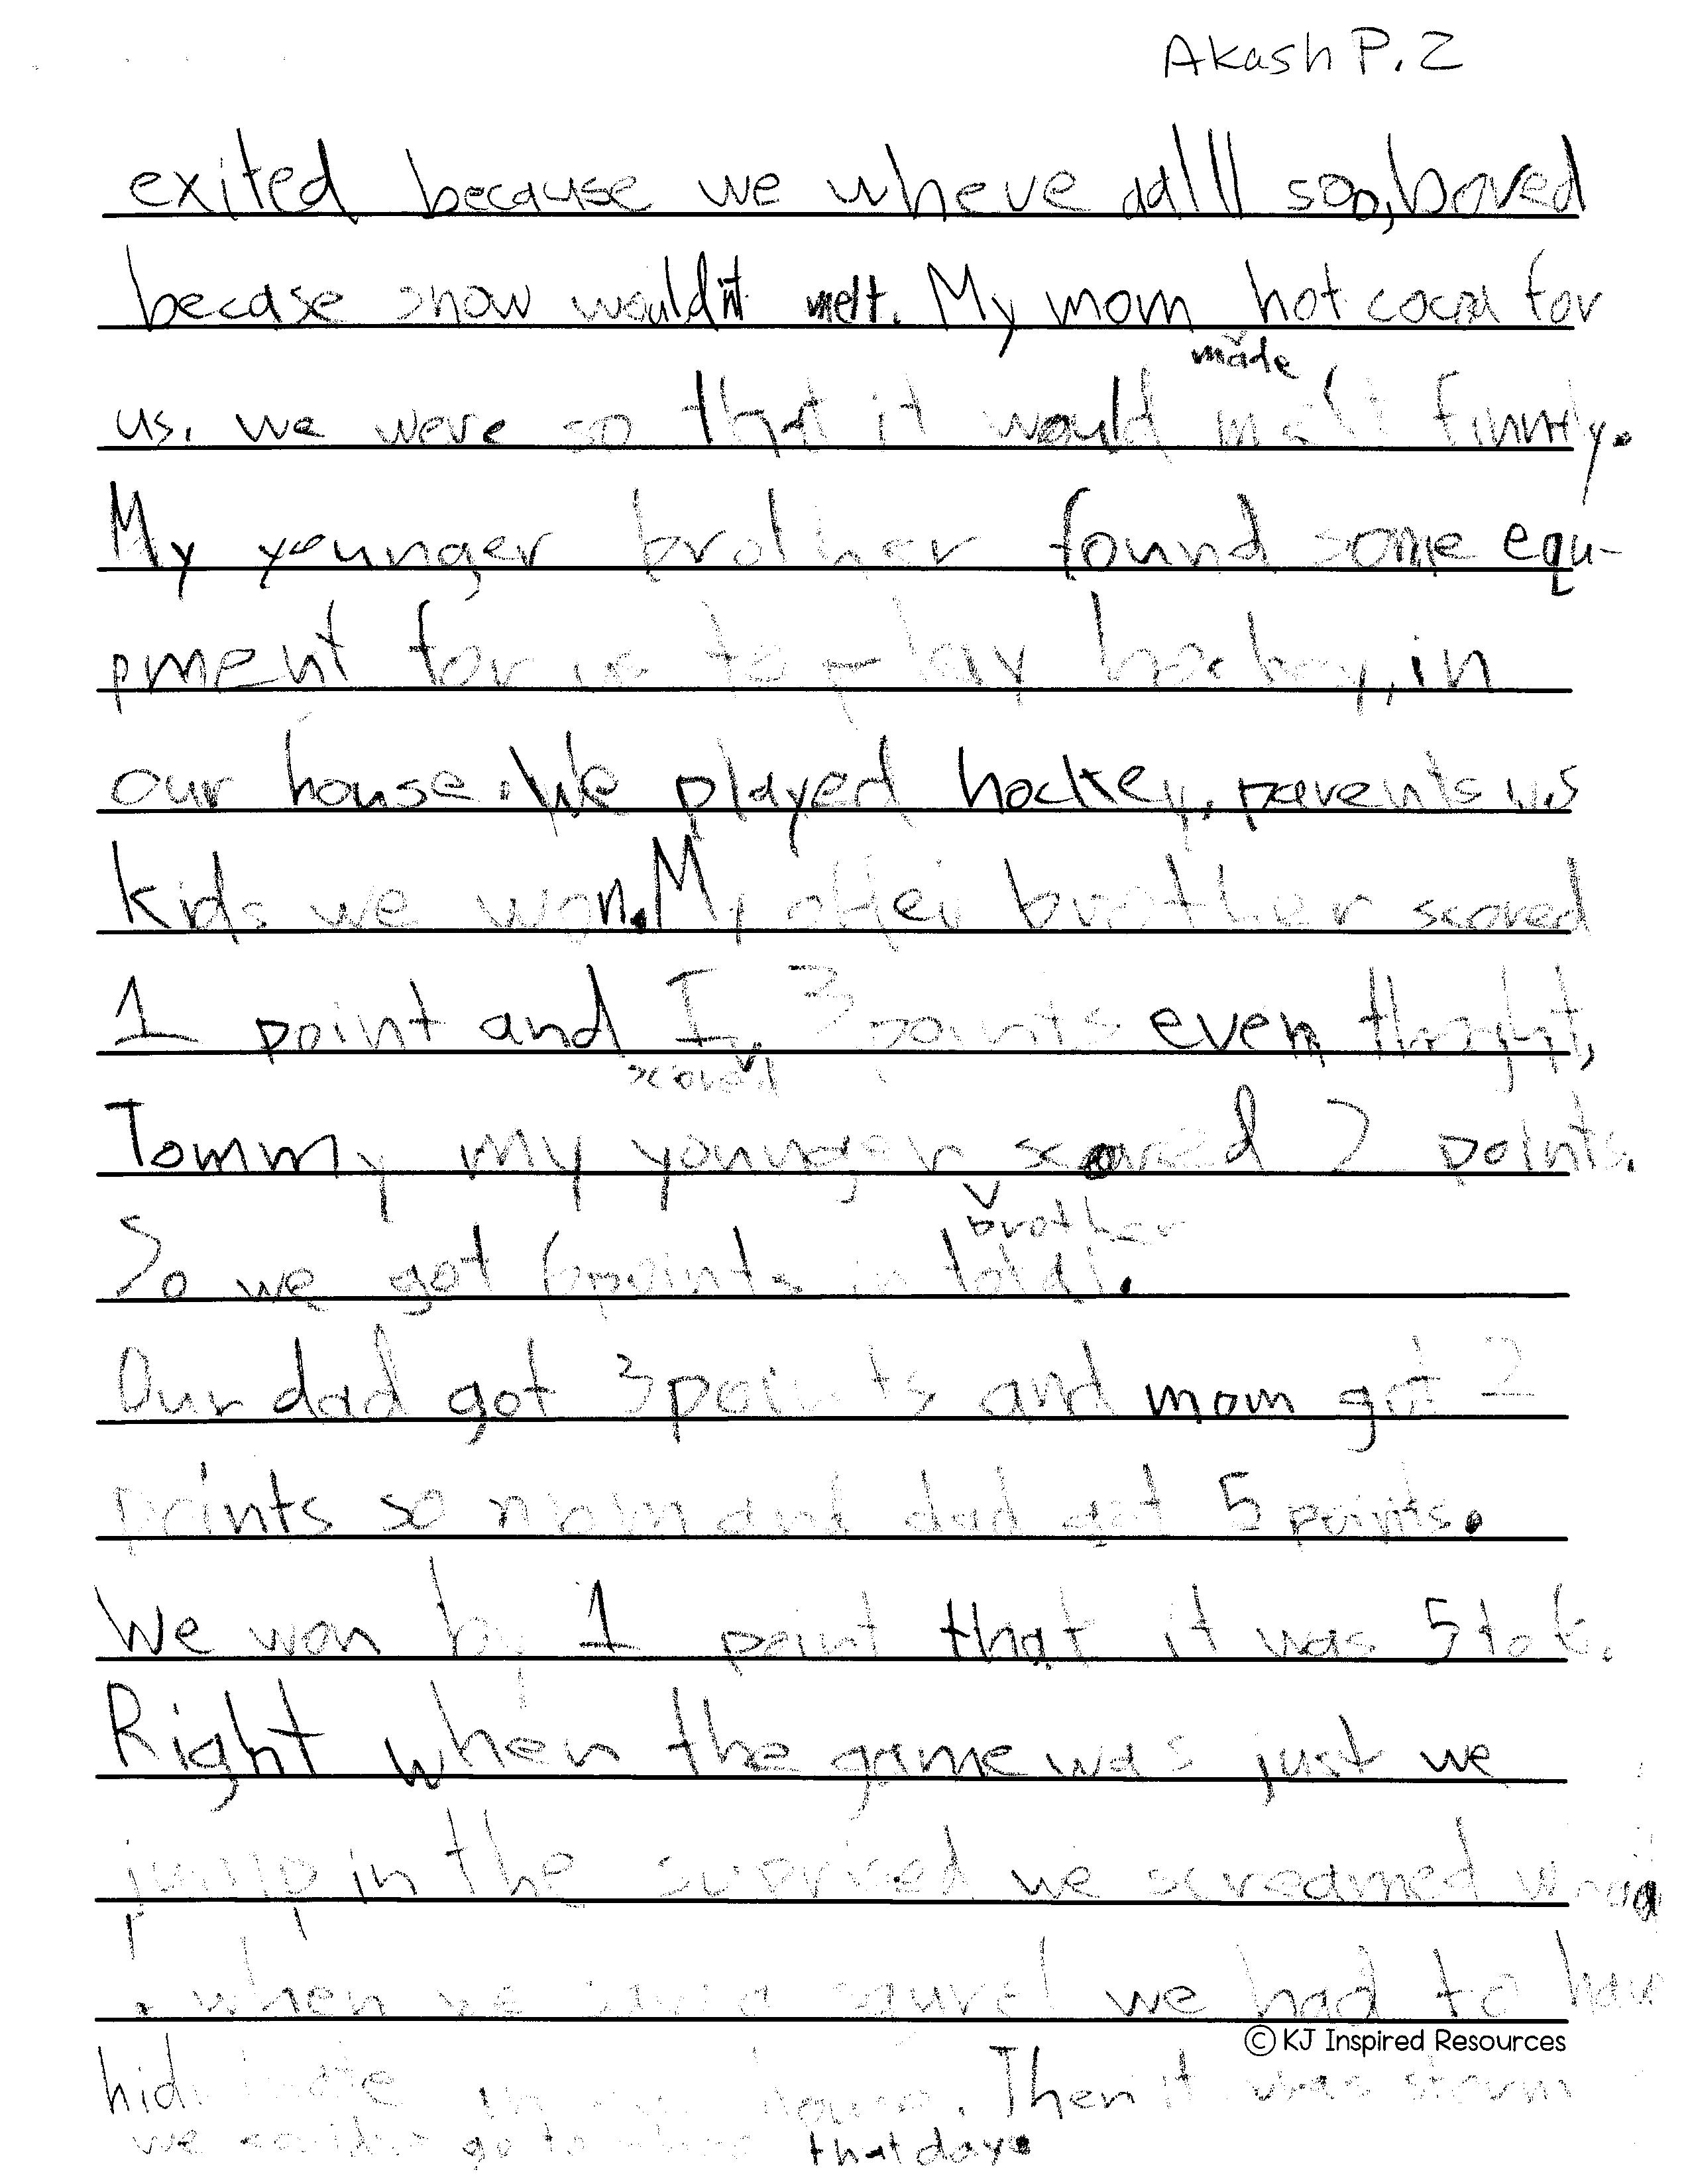 Akash P. 2
exited because we where aalll soo, bored
becase snow wouldn't melt. My mom hot cocoa for
made
us. we were so that it would melt finnly.
My younger brother found some equ-
pment for us to play hockey, in
our house. We played hockey. parents us
kids we won. My brother scored
1 point and I 3 points even
scored
Tommy my younger scored 2 points.
brother
So we got 6 points in total.
Our dad got 3 points and mom got 2
points so mom and dad got 5 points.
We won by 1 point that it was 5 to 6.
Right when the game was just we
jump in the suprised we screamed
when we a we had to
© KJ Inspired Resources
in house. Then it was storm
we go to that day.